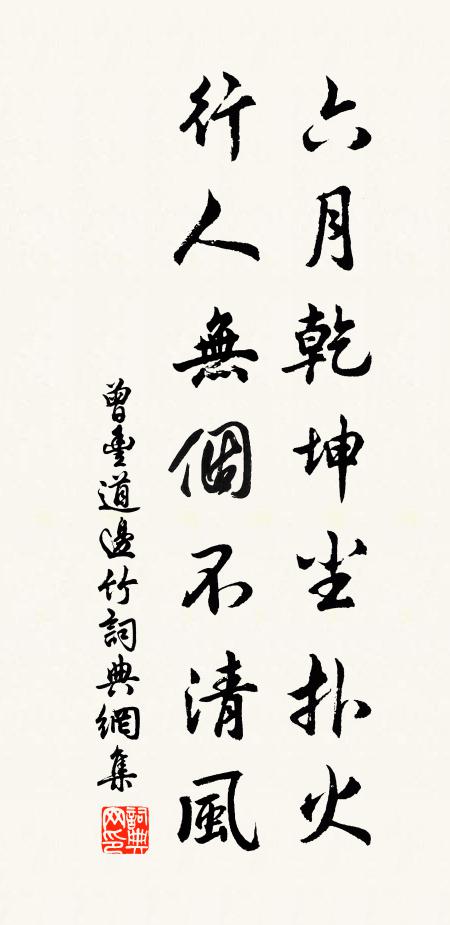 六月乾坤尘扑火
行人無個不清風
曾豐道邊竹詞典網集
詞典
网印